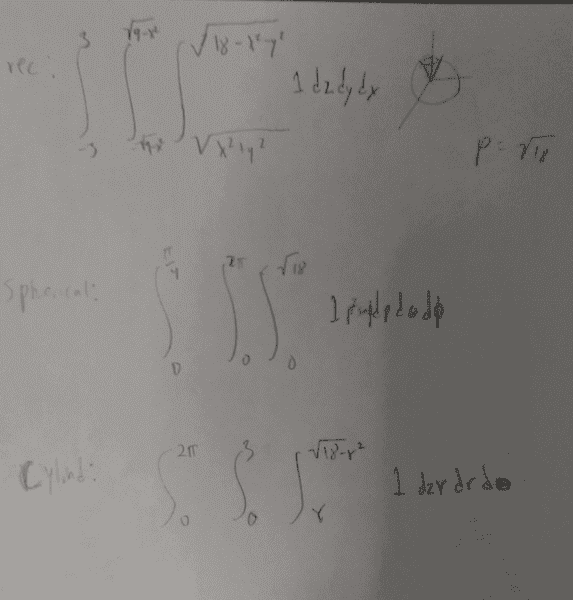 rec: ∫_{-3}^{3} ∫_{-√(9-x²)}^{√(9-x²)} ∫_{√(x²+y²)}^{√(18-x²-y²)} 1 dz dy dx
ρ = √18
Spherical: ∫_{0}^{π/4} ∫_{0}^{2π} ∫_{0}^{√18} 1 ρ² sinφ dρ dθ dφ
Cylind: ∫_{0}^{2π} ∫_{0}^{3} ∫_{r}^{√(18-r²)} 1 dz r dr dθ